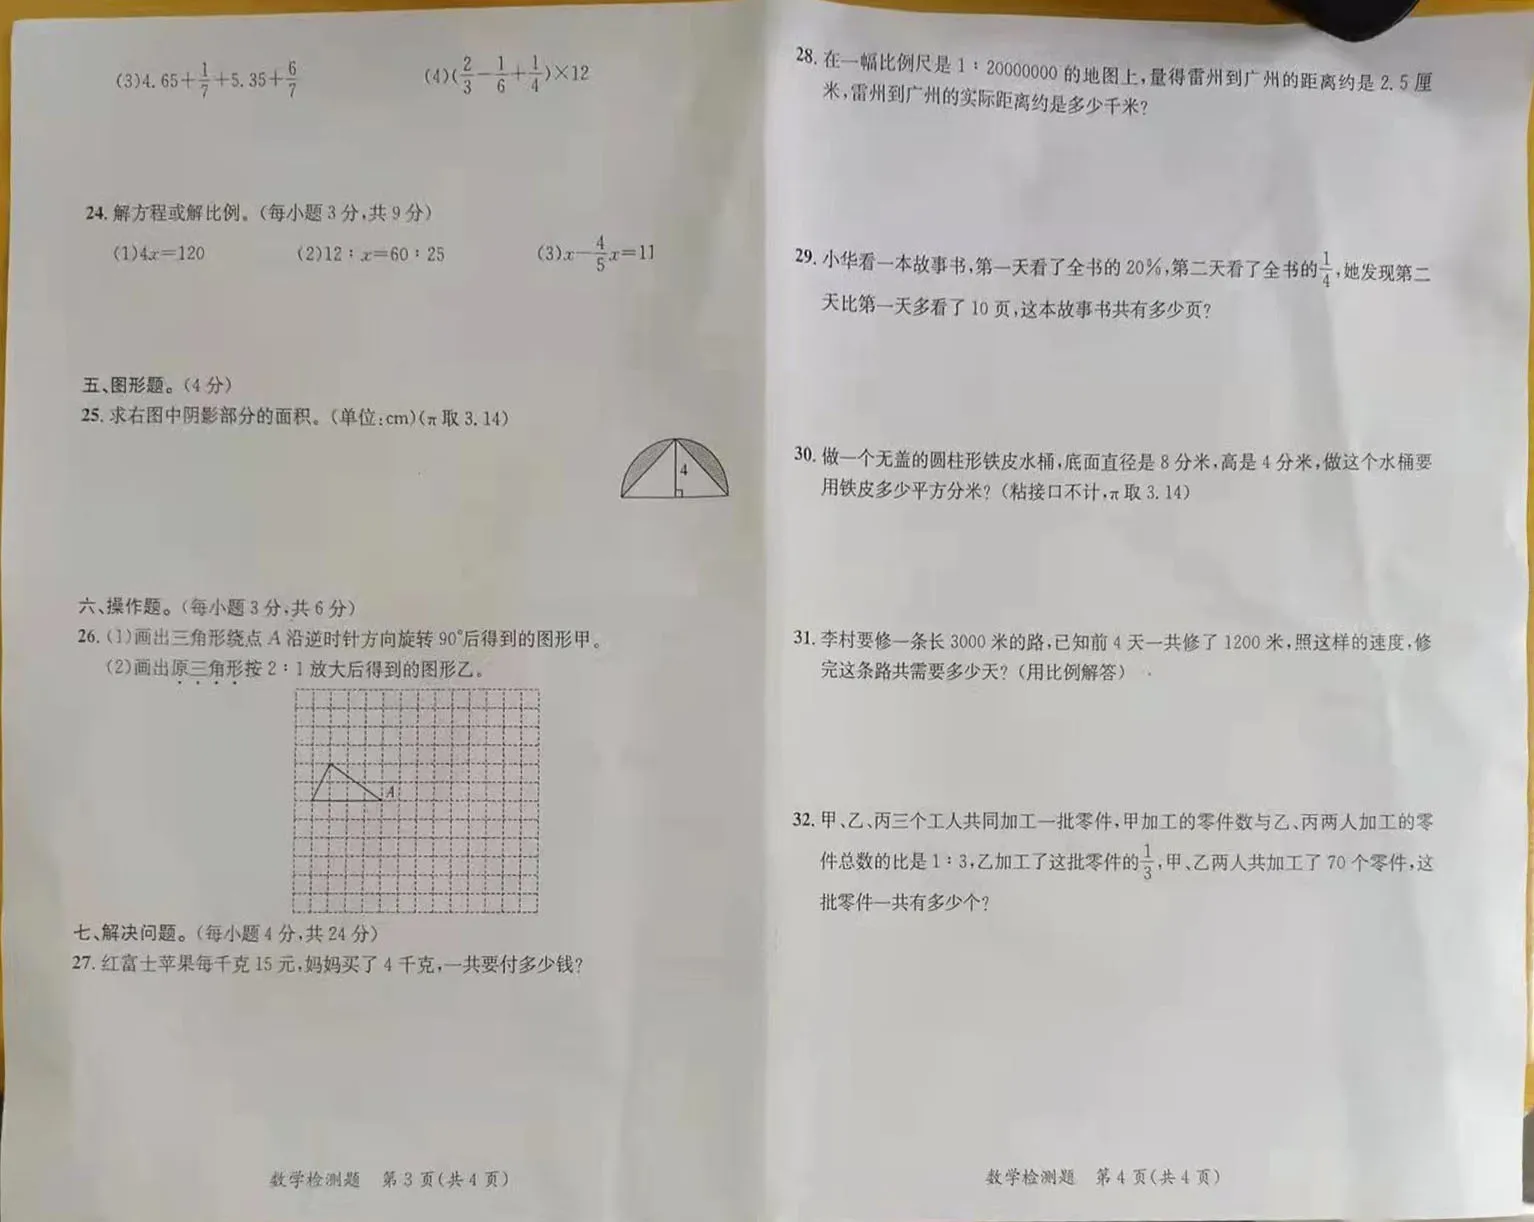 (3)4.65+1/7+5.35+6/7
(4)(2/3-1/6+1/4)×12
24. 解方程或解比例。(每小题3分,共9分)
(1)4x=120
(2)12∶x=60∶25
(3)x-4/5x=11
五、图形题。(4分)
25. 求右图中阴影部分的面积。(单位:cm)(π取3.14)
4
六、操作题。(每小题3分,共6分)
26. (1)画出三角形绕点A沿逆时针方向旋转90°后得到的图形甲。
(2)画出原三角形按2∶1放大后得到的图形乙。
A
七、解决问题。(每小题4分,共24分)
27. 红富士苹果每千克15元,妈妈买了4千克,一共要付多少钱?
数学检测题 第3页(共4页)
28. 在一幅比例尺是1∶20000000的地图上,量得雷州到广州的距离约是2.5厘
米,雷州到广州的实际距离约是多少千米?
29. 小华看一本故事书,第一天看了全书的20%,第二天看了全书的1/4,她发现第二
天比第一天多看了10页,这本故事书共有多少页?
30. 做一个无盖的圆柱形铁皮水桶,底面直径是8分米,高是4分米,做这个水桶要
用铁皮多少平方分米?(粘接口不计,π取3.14)
31. 李村要修一条长3000米的路,已知前4天一共修了1200米,照这样的速度,修
完这条路共需要多少天?(用比例解答)
32. 甲、乙、丙三个工人共同加工一批零件,甲加工的零件数与乙、丙两人加工的零
件总数的比是1∶3,乙加工了这批零件的1/3,甲、乙两人共加工了70个零件,这
批零件一共有多少个?
数学检测题 第4页(共4页)